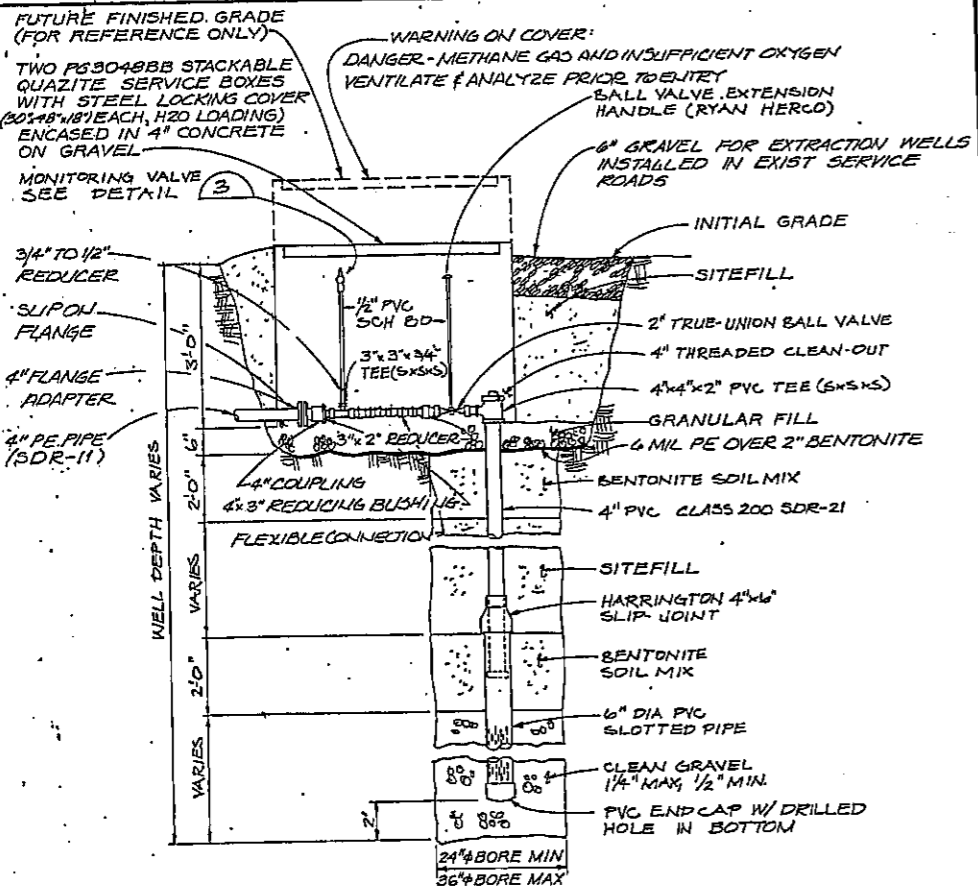 FUTURE FINISHED. GRADE
(FOR REFERENCE ONLY)
TWO PG3048BB STACKABLE
QUAZITE SERVICE BOXES
WITH STEEL LOCKING COVER
(30"x48"x18") EACH, H20 LOADING)
ENCASED IN 4" CONCRETE
ON GRAVEL
MONITORING VALVE
SEE DETAIL 3
WARNING ON COVER:
DANGER-METHANE GAS AND INSUFFICIENT OXYGEN
VENTILATE & ANALYZE PRIOR TO ENTRY
BALL VALVE EXTENSION
HANDLE (RYAN HERCO)
6" GRAVEL FOR EXTRACTION WELLS
INSTALLED IN EXIST SERVICE
ROADS
INITIAL GRADE
SITEFILL
3/4" TO 1/2"
REDUCER
SLIP ON
FLANGE
4" FLANGE
ADAPTER
4" PE.PIPE
(SDR-11)
1/2" PVC
SCH 80
3"x3"x3/4"
TEE(SXSXS)
2" TRUE-UNION BALL VALVE
4" THREADED CLEAN-OUT
4"x4"x2" PVC TEE (SXSXS)
GRANULAR FILL
6 MIL PE OVER 2" BENTONITE
3"x2" REDUCER
4" COUPLING
4"x3" REDUCING BUSHING
FLEXIBLE CONNECTION
BENTONITE SOIL MIX
4" PVC CLASS 200 SDR-21
SITEFILL
HARRINGTON 4"x6"
SLIP-JOINT
BENTONITE
SOIL MIX
6" DIA PVC
SLOTTED PIPE
CLEAN GRAVEL
1 1/4" MAX, 1/2" MIN.
PVC END CAP W/ DRILLED
HOLE IN BOTTOM
WELL DEPTH VARIES
3'-0"
6"
2'-0"
VARIES
2'-0"
VARIES
2'
24"ϕ BORE MIN
36"ϕ BORE MAX